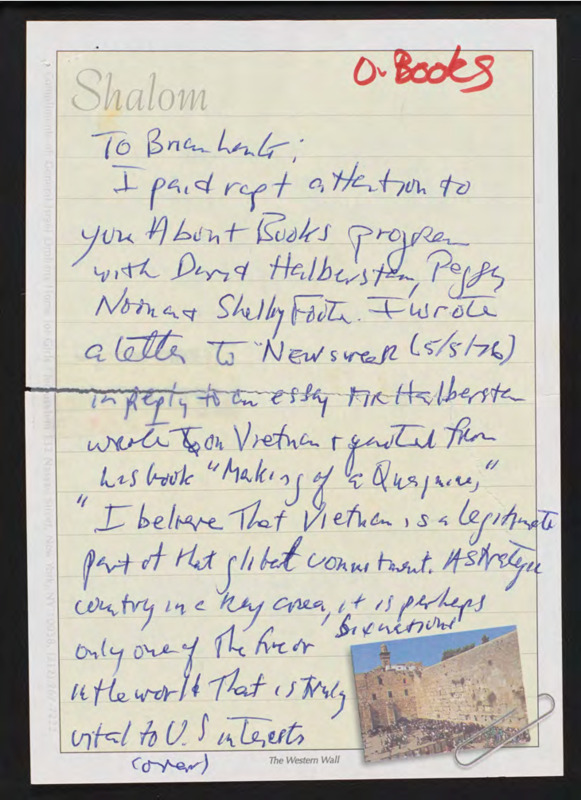 O-Books
Shalom
To Brian Lamb;
I paid rapt attention to
your About Books program
with David Halberstam, Peggy
Noonan & Shelby Foote. I wrote
a letter to "Newsweek (5/5/76)
in reply to an essay Mr Halberstam
wrote on Vietnam & quoted from
his book "Making of a Quagmire,"
"I believe That Vietnam is a legitimate
part of that global commitment. A strategic
country in a key area, it is perhaps
only one of The five or six nations
in the world That is truly
vital to U.S interests
(over)
The Western Wall